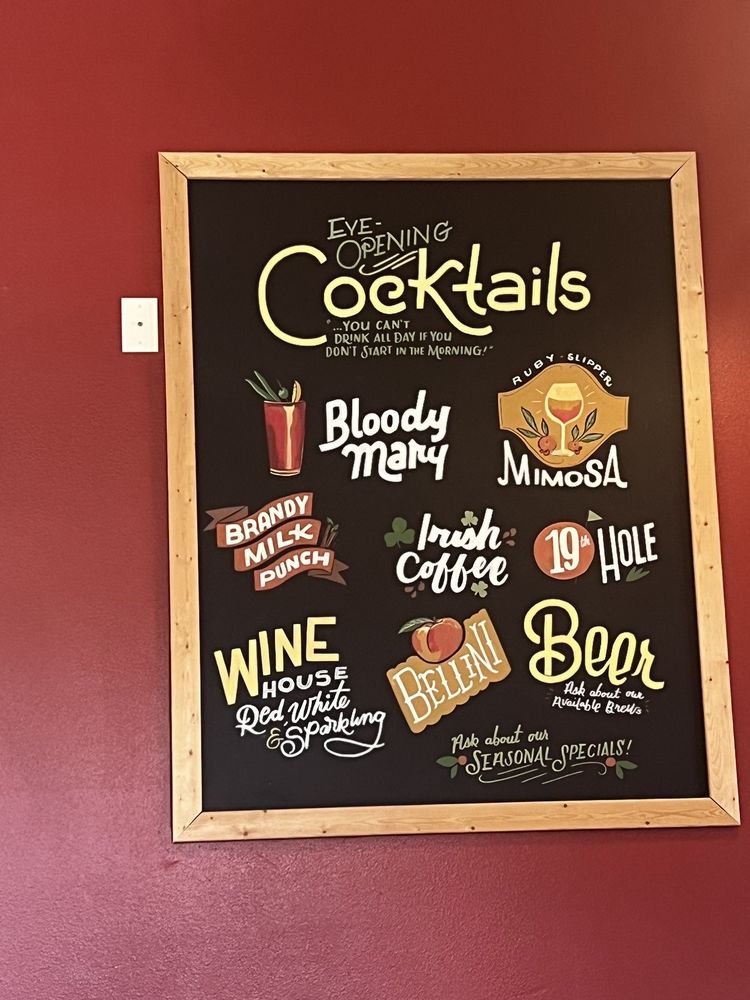 EYE-
OPENING
Cocktails
"...YOU CAN'T
DRINK ALL DAY IF YOU
DON'T START IN THE MORNING!"
Bloody
Mary
RUBY-SLIPPER
MIMOSA
BRANDY
MILK
PUNCH
Irish
Coffee
19th HOLE
WINE
HOUSE
Red, White
& Sparkling
BELLINI
Beer
Ask about our
Available Brews
Ask about our
SEASONAL SPECIALS!